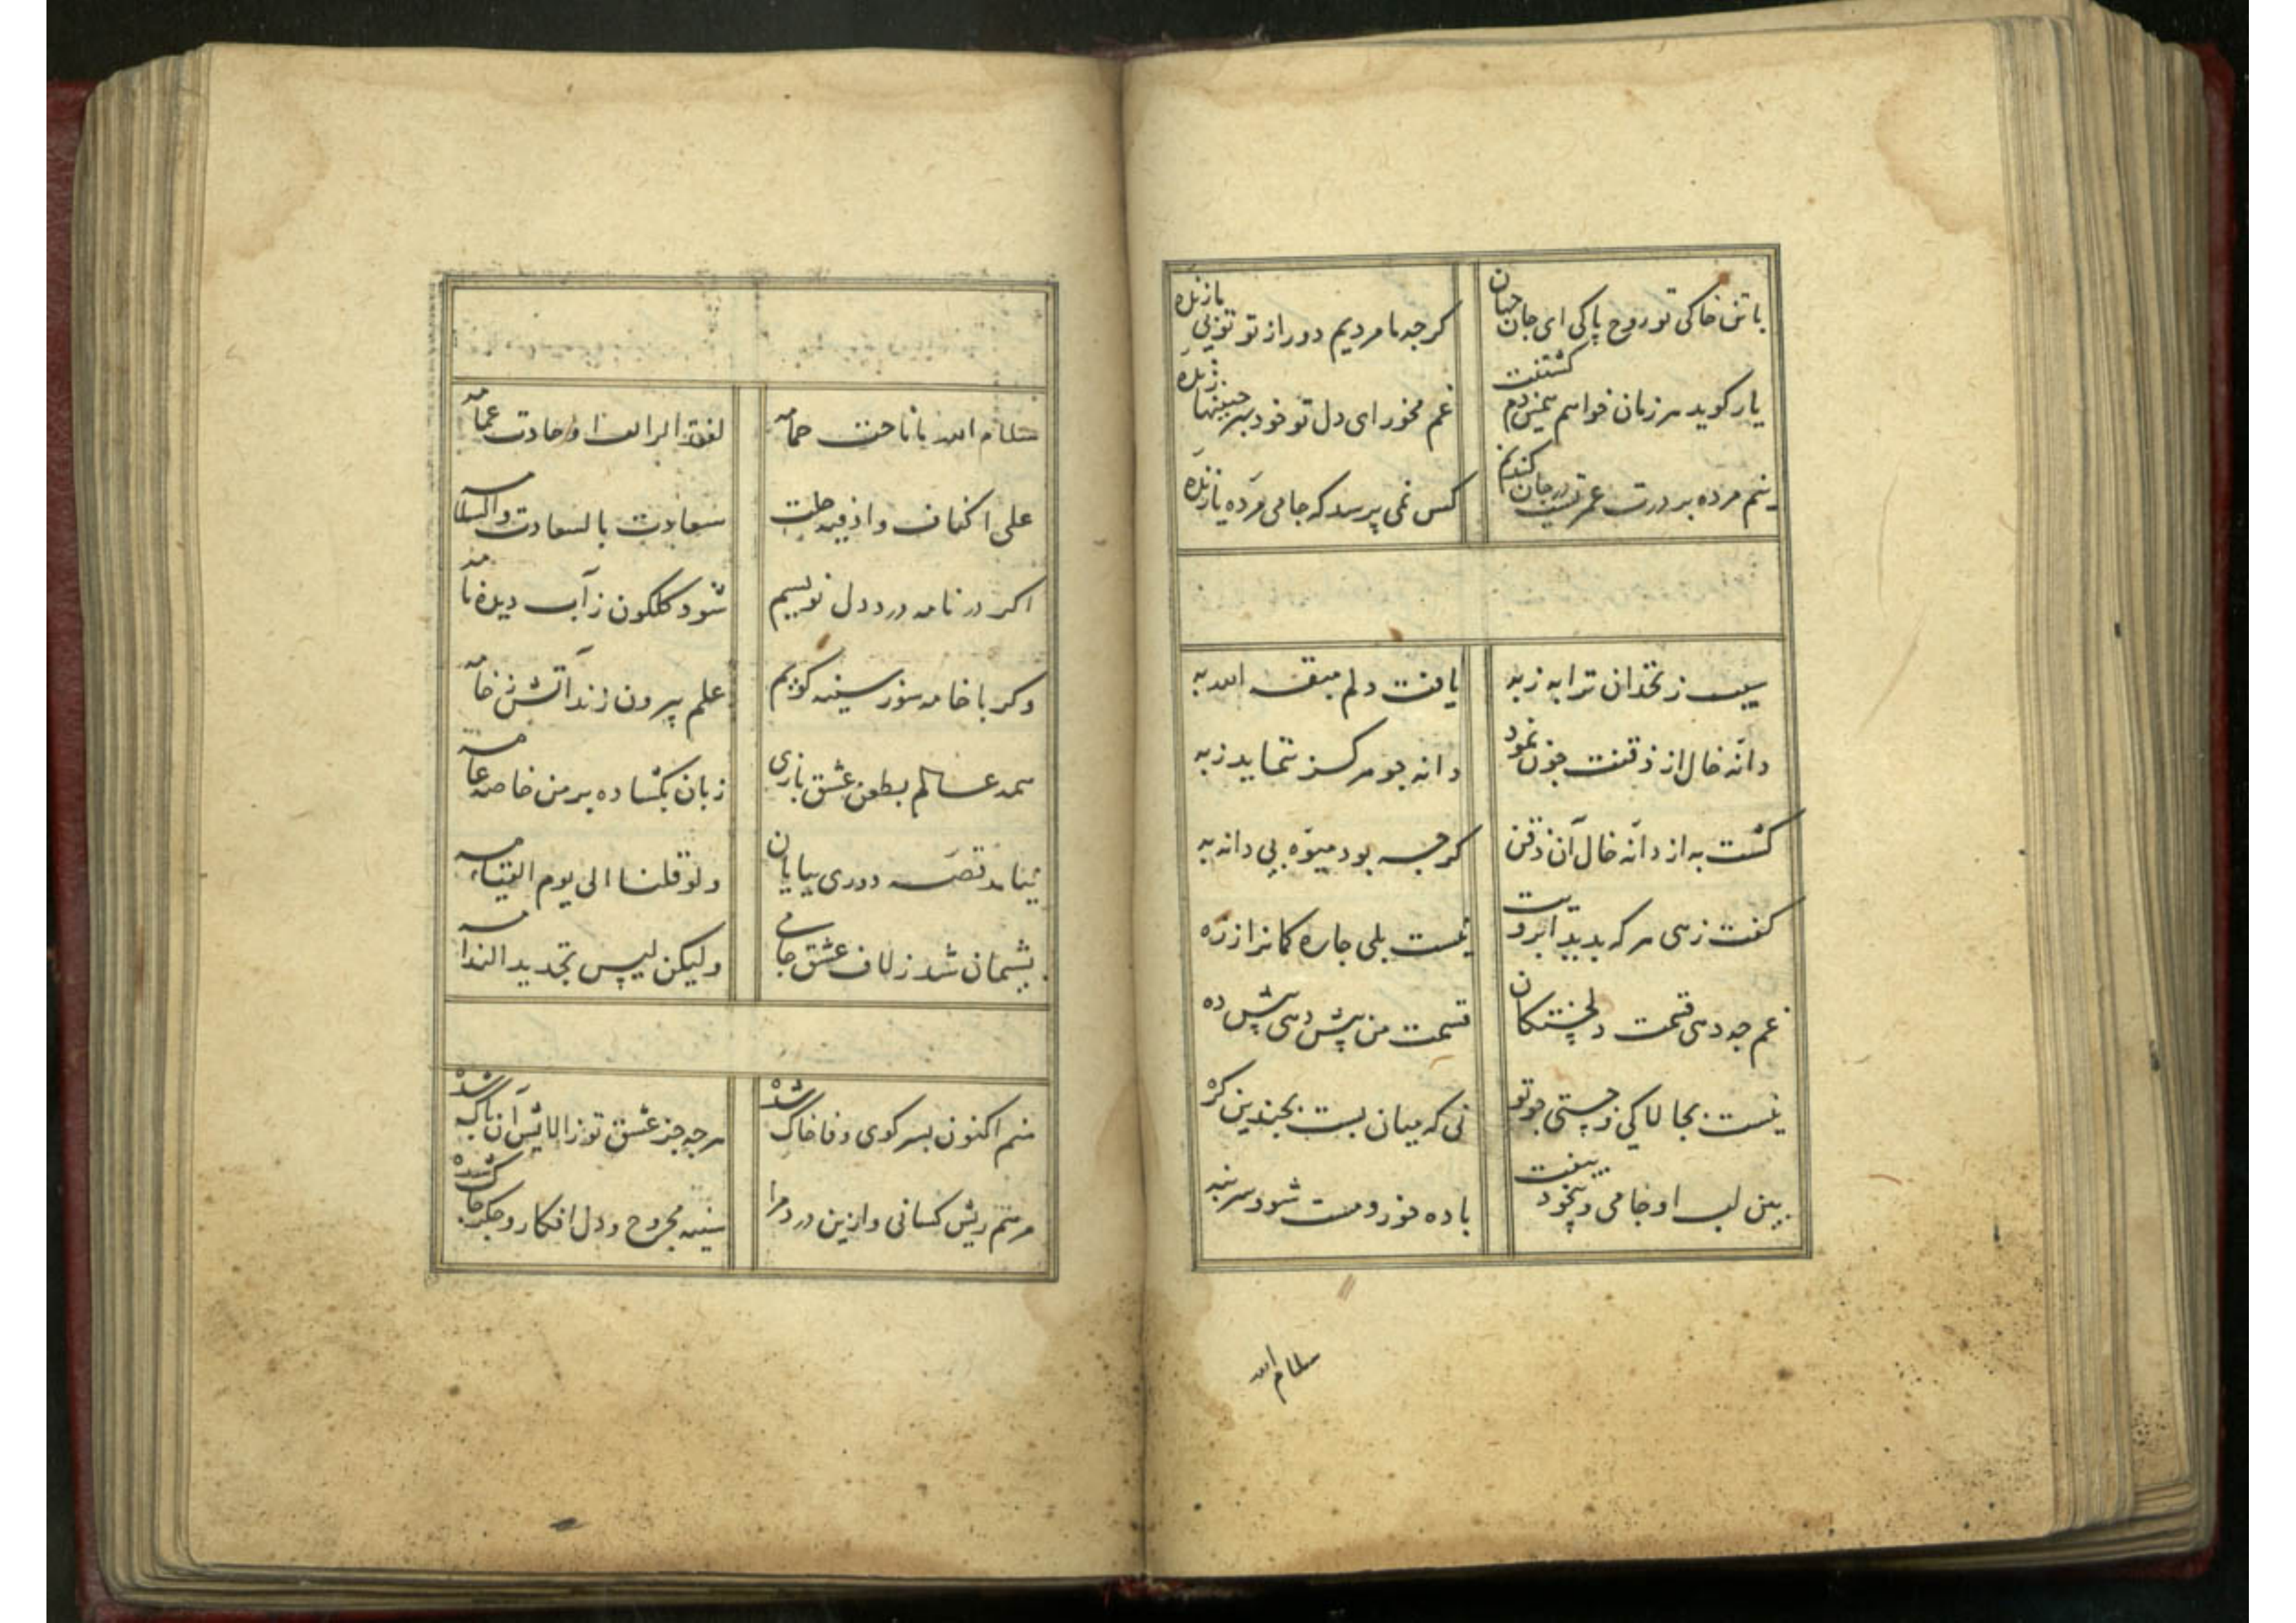 با تن خاکی تو روح پاکی ای جان جهان
کرجه ما مردیم دور از تو تویی یا زنده
یار کوید هر زمان خواهم بخنین دم کشتنت
غم مخور ای دل تو خود
زنده
مرده بر درت عمریست در جان کندنم
کس نمی پرسد که جامی مرده یا زنده
سیب زنخدان ترا به ز به
یافت دلم متفق الله به
دانه خال از ذقنت جون نمود
دانه جو هرکز ننماید ز به
کشت به از دانه خال آن ذقن
کرجه بود میوه بی دانه به
کفت زهی هر که بدید ابرویت
نیست بلی جاره کمانرا ز زه
غم جو دهی قسمت دلخستکان
قسمت من پیش دهی پیش ده
نیست بجالاکی و جستی جو تو
نی که میان بست بجندین کره
بین لب او جامی و بیخود بیفت
باده خور و مست شو و سر بنه
سلام الله
سلام الله ما ناحت حمامه
علی اکناف واد فیه حلت
سعادت بالسعادت والسلامه
اکر در نامه درد دل نویسیم
شود کلکون ز آب دیده نامه
وکر با خامه سوز سینه کوییم
علم بیرون زند آتش ز خامه
همه عالم بطعن عشق بازی
زبان بکشاده بر من خاصه عامه
قصه دوری بپایان
ولو قلنا الی یوم القیامه
پشیمان شد ز لاف عشق جامی
ولیکن لیس تجدید الندامه
منم اکنون بسر کوی وفا خاک شده
هرجه جز عشق تو ز الایش آن پاک شده
مرهم ریش کسانی و ازین درد مرا
سینه مجروح و دل افکار و جکر جاک شده